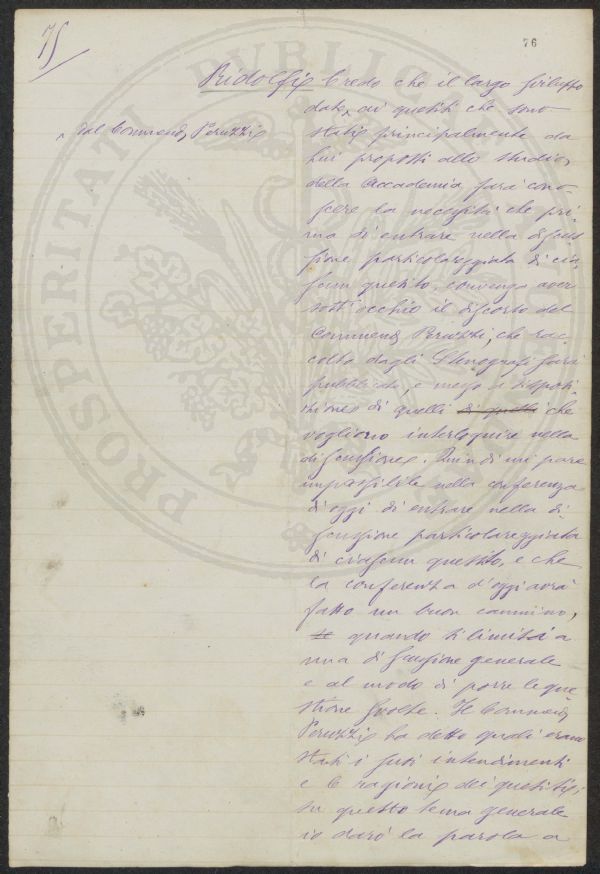 75
76
Ridolfi Credo che il largo sviluppo
dato ai quesiti che sono
dal Commend. Peruzzi
stati principalmente da
lui proposti allo studio
della Accademia farà cono-
scere la necessità che pri-
ma di entrare nella discus-
sione particolareggiata di cia-
scun quesito, convenga aver
sott'occhio il discorso del
Commend. Peruzzi, che rac-
colto dagli Stenografi sarà
pubblicato, e messo a disposi-
zione di quelli di quelli che
vogliono interloquire nella
discussione. Quindi mi pare
impossibile nella conferenza
d'oggi di entrare nella di-
scussione particolareggiata
di ciascun quesito, e che
la conferenza d'oggi avrà
fatto un buon cammino,
quando si limiti a
una discussione generale
e al modo di porre le que-
stione svolte. Il Commend.
Peruzzi ha detto quali erano
stati i suoi intendimenti
e le ragioni dei quesiti;
su questo tema generale
io darò la parola a
PROSPERITATI PUBLICAE